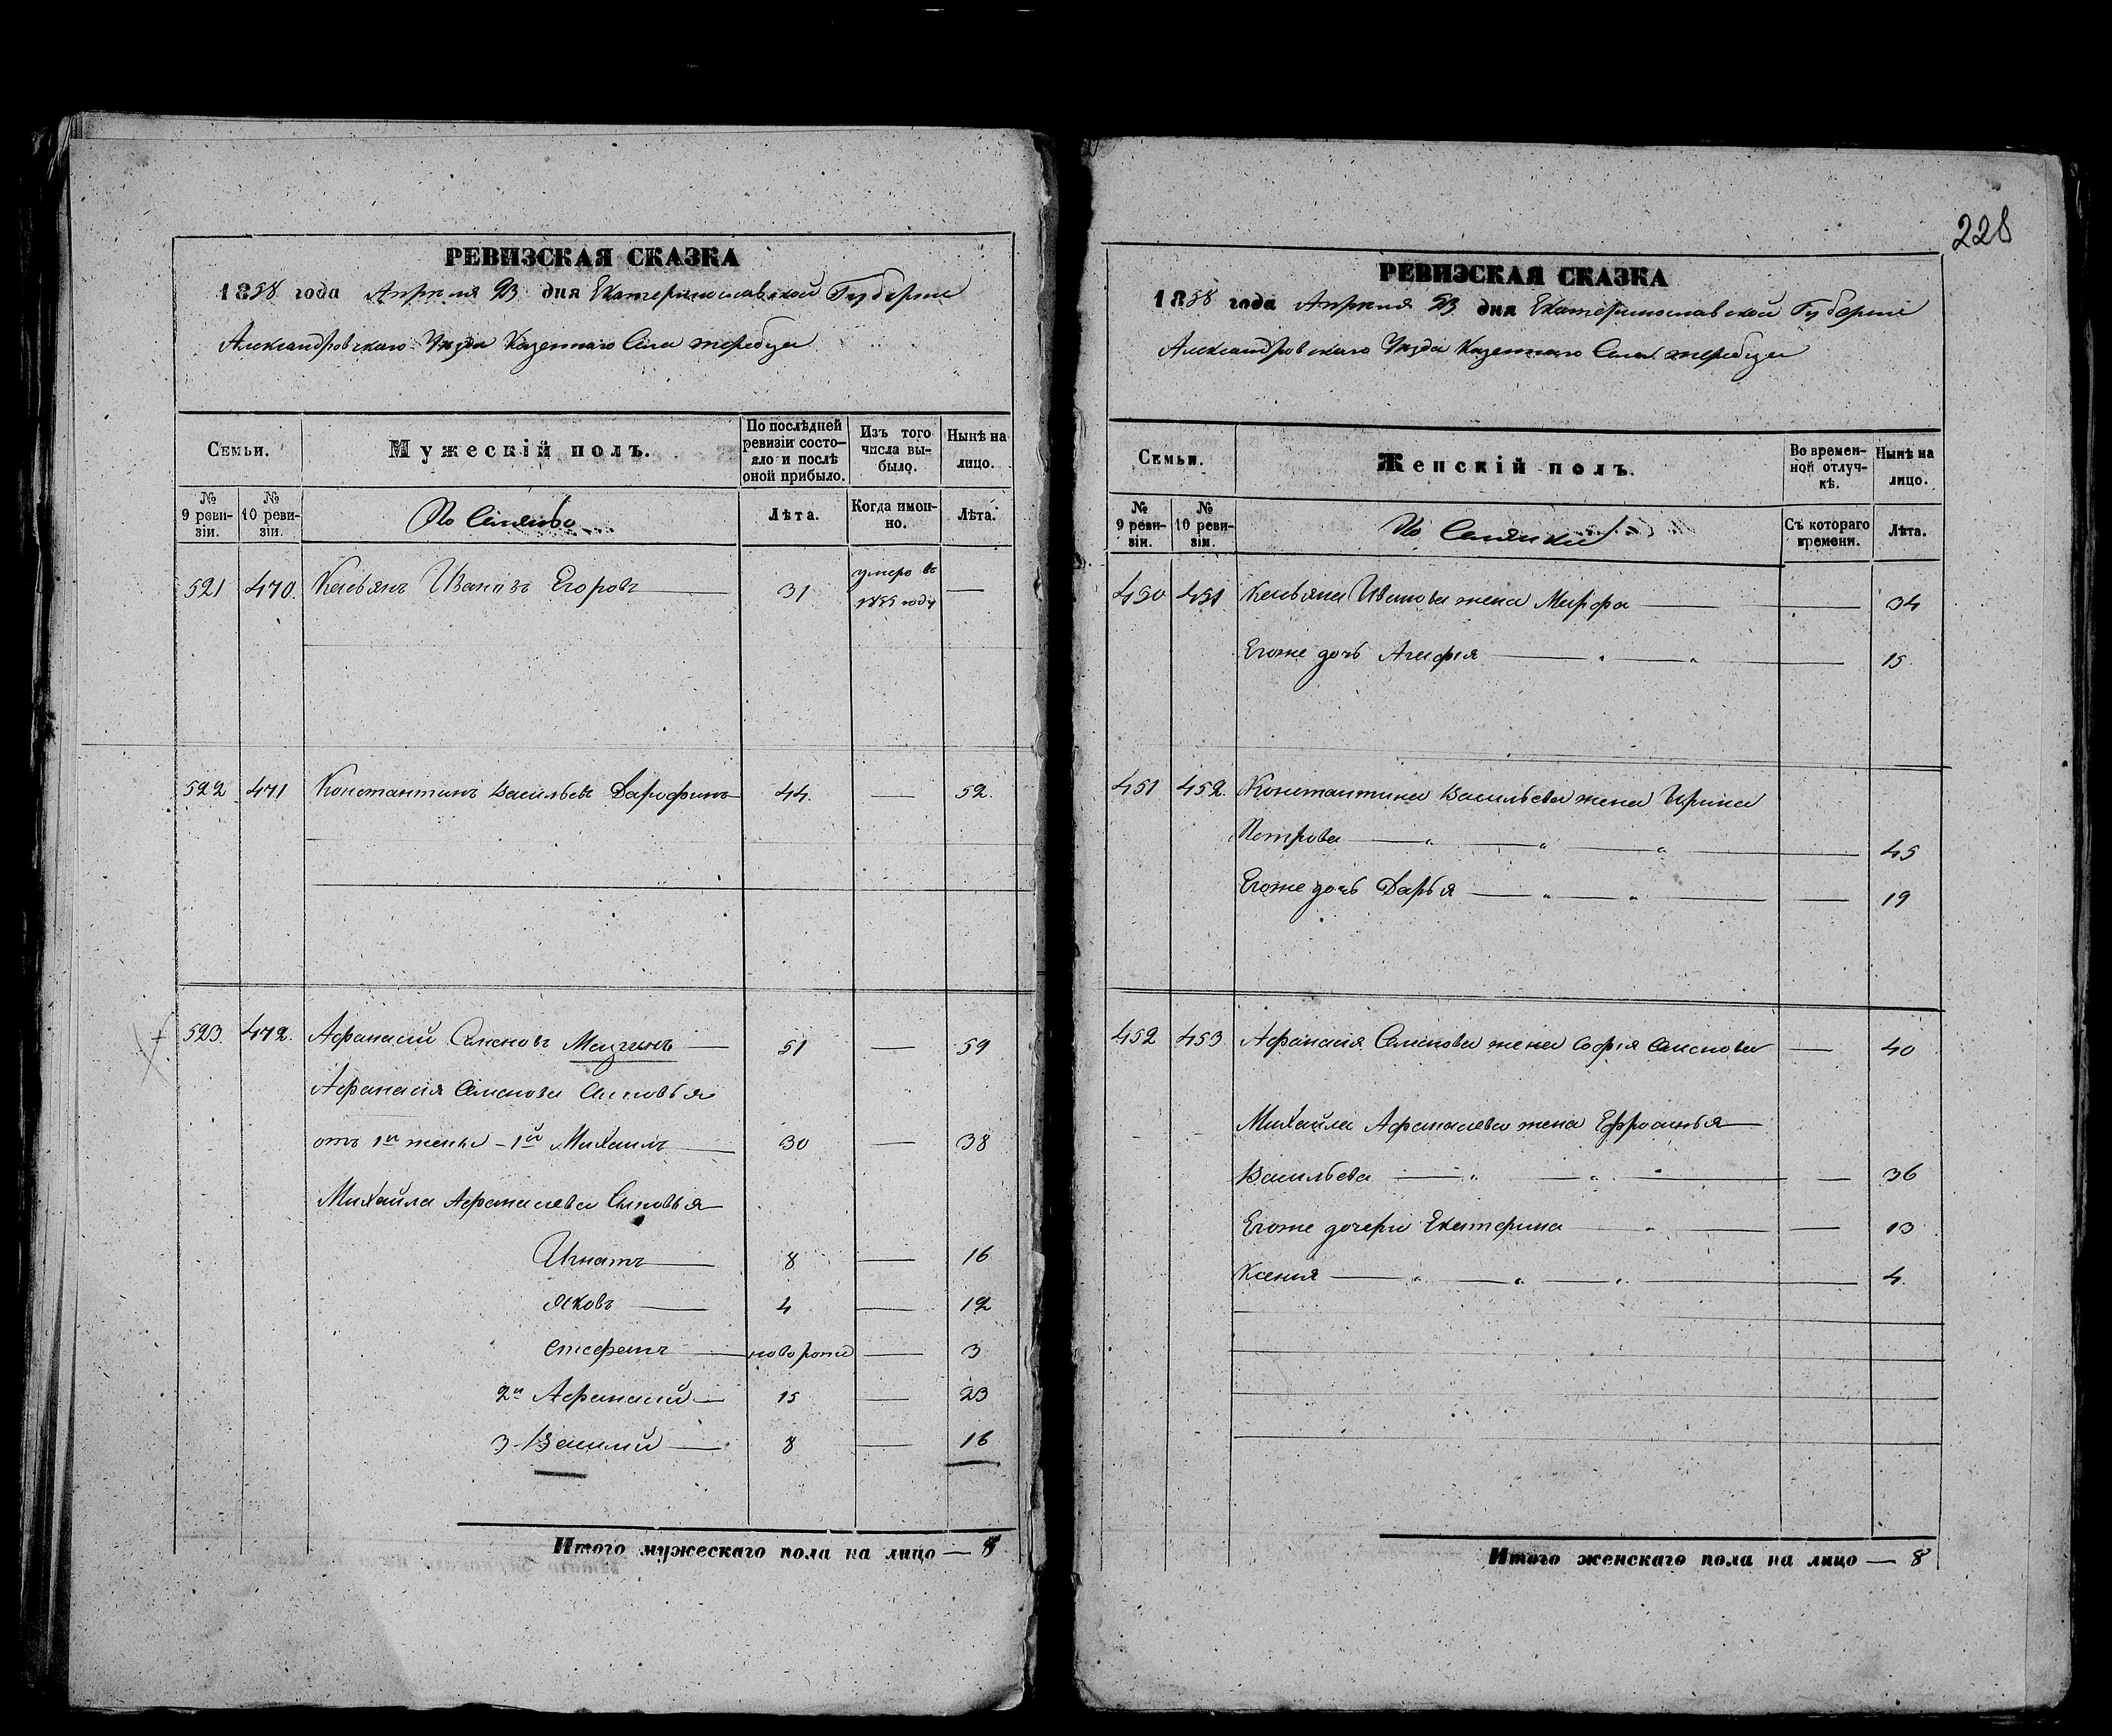 РЕВИЗСКАЯ СКАЗКА
1858 года Апреля 23 дня Екатеринославской Губернии
Александровскаго Уезда Казеннаго Села жеребца
Семьи.
Мужескій полъ.
По послѣдней ревизіи состояло и послѣ оной прибыло.
Изъ того числа выбыло.
Нынѣ на лицо.
№ 9 ревизіи.
№ 10 ревизіи.
Лѣта.
Когда имонно.
Лѣта.
521 470. Иванов Егоровъ 31 умеръ въ 1855 году —
522 471 Константинъ Васильевъ 44. — 52.
523. 472. Афанасий Семеновъ — 51 — 59
Афанасия Семенова Сыновья
отъ 1й жены – 1й Михаилъ — 30 — 38
Михайла Афанасиева Сыновья
Игнатъ — 8 — 16
Яковъ — 4 — 12
Стефанъ — новорожд — 3
2й Афанасий — 15 — 23
3 Василий — 8 — 16
Итого мужескаго пола на лицо — 8
228
РЕВИЗСКАЯ СКАЗКА
1858 года Апреля 23 дня Екатеринославской Губернии
Александровскаго Уезда Казеннаго Села жеребца
Семьи.
Женскій полъ.
Во временной отлучкѣ.
Нынѣ на лицо.
№ 9 ревизіи.
№ 10 ревизіи.
Съ котораго времени.
Лѣта.
450 451 Иванова жена Марфа — — 34
Егоже дочь Агафия — „ — „ — 15
451 452. Константина Васильева жена Ирина
Петрова — „ — „ — „ — 45
Егоже дочь Дарья — „ — „ — — 19
452 453 Афанасия Семенова жена София Семенова — 40
Михайла Афанасиева жена Ефросинья —
Васильева — „ — „ — „ — — 36
Егоже дочери Екатерина — „ — — 13
Ксения — „ — „ — „ — 4
Итого женскаго пола на лицо — 8